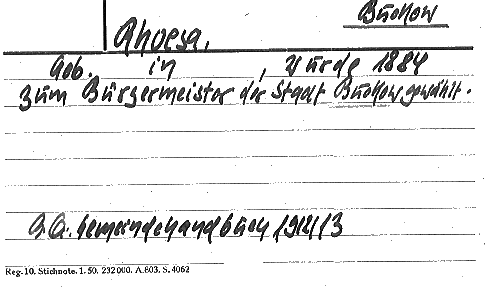 Buckow
Rhoesa,
Geb. in , wurde 1884
zum Bürgermeister der Stadt Buckow gewählt.
Gemeindehandbuch 1912/13
Reg. 10. Stichnote. 1. 50. 232000. A.803. S. 4062